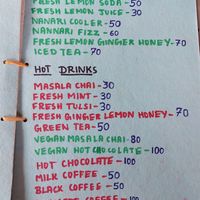 FRESH LEMON SODA - 50
FRESH LEMON JUICE - 30
NANARI COOLER - 50
NANNARI FIZZ - 60
FRESH LEMON GINGER HONEY - 70
ICED TEA - 70
HOT DRINKS
MASALA CHAI - 30
FRESH MINT - 30
FRESH TULSI - 30
FRESH GINGER LEMON HONEY - 70
GREEN TEA - 50
VEGAN MASALA CHAI - 80
VEGAN HOT CHOCOLATE - 100
HOT CHOCOLATE - 100
MILK COFFEE - 50
BLACK COFFEE - 50
COFFEE - 100